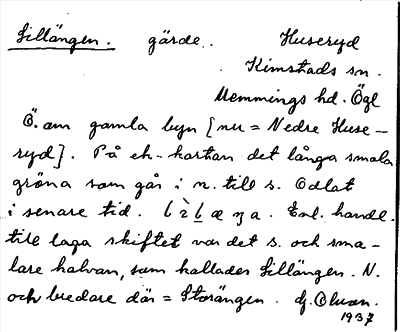 Lillängen. gärde. Huseryd
Kimstads sn.
Memmings hd. Ögl
Ö. om gamla byn [nu = Nedre Huse-
ryd]. På ek-kartan det långa smala
gröna som går i n. till s. Odlat
i senare tid. Enl. handl.
till laga skiftet var det s. och sma-
lare halvan, som kallades Lillängen. N.
och bredare där = Storängen.
1937